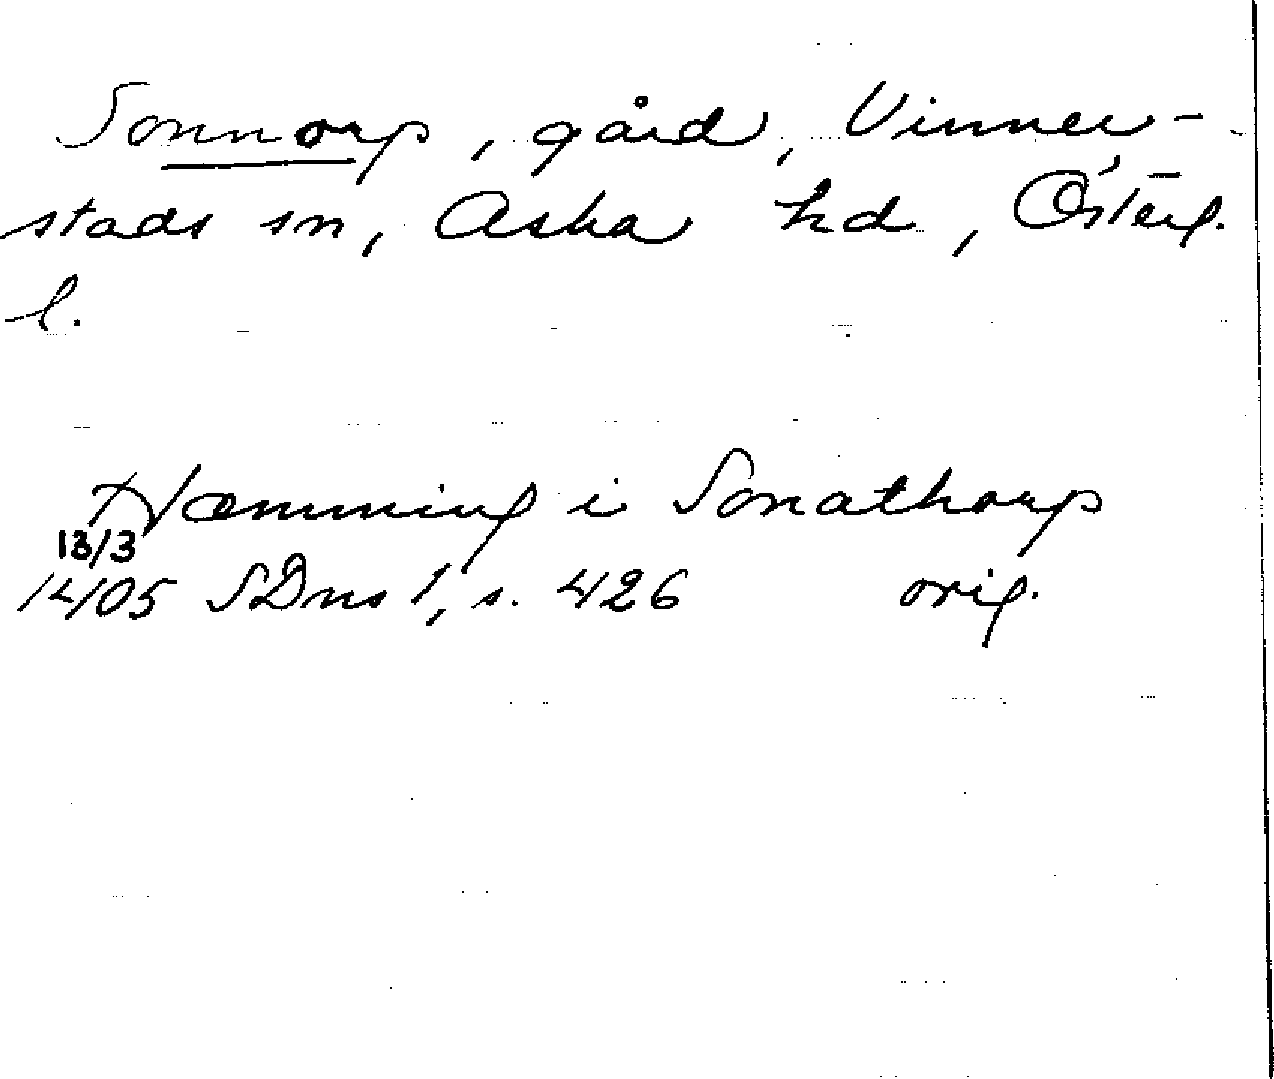 Sonnorp, gård, Vinner-
stads sn, Aska hd, Österg.
l.
Hæmming i Sonathorp
13/3
1405 SDns 1, s. 426 orig.